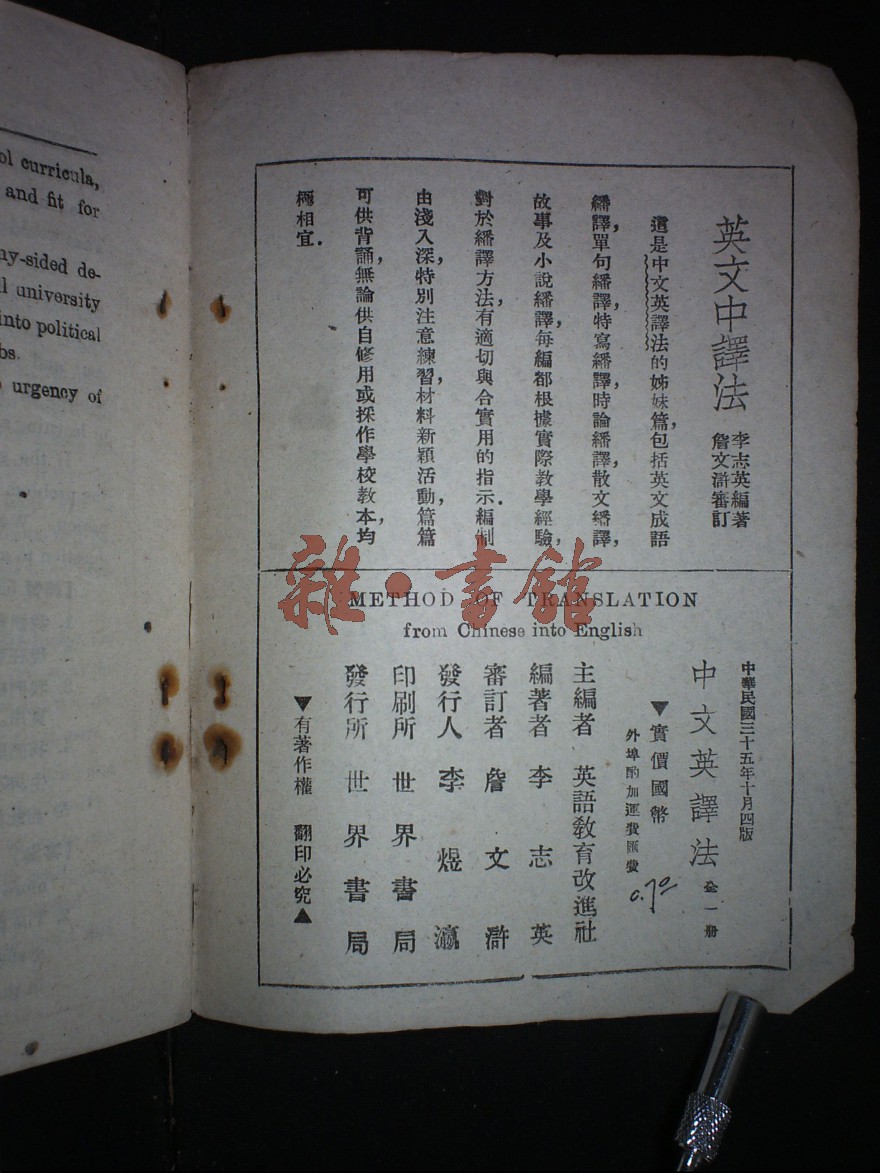 ol curricula,
and fit for
ny-sided de-
l university
into political
bs.
urgency of
英文中譯法
李志英編著
詹文滸審訂
這是中文英譯法的姊妹篇，包括英文成語
繙譯，單句繙譯，特寫繙譯，時論繙譯，散文繙譯，
故事及小說繙譯，每編都根據實際教學經驗，
對於繙譯方法，有適切與合實用的指示．編制
由淺入深，特別注意練習，材料新穎活動，篇篇
可供背誦，無論供自修用或採作學校教本，均
極相宜．
雜·書館
METHOD OF TRANSLATION
from Chinese into English
中華民國三十五年十月四版
中文英譯法 全一册
▼實價國幣
外埠酌加運費匯費
0.70
主編者 英語教育改進社
編著者 李志英
審訂者 詹文滸
發行人 李煜瀛
印刷所 世界書局
發行所 世界書局
▼有著作權 翻印必究▲